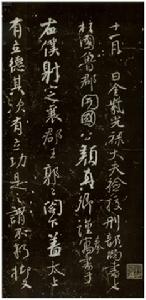 十一月 日金紫光祿大夫檢校刑部尚書上
柱國魯郡開國公顏真卿謹奉書于
右僕射定襄郡王郭公閣下蓋太上
有立德其次有立功是之謂不朽抑又